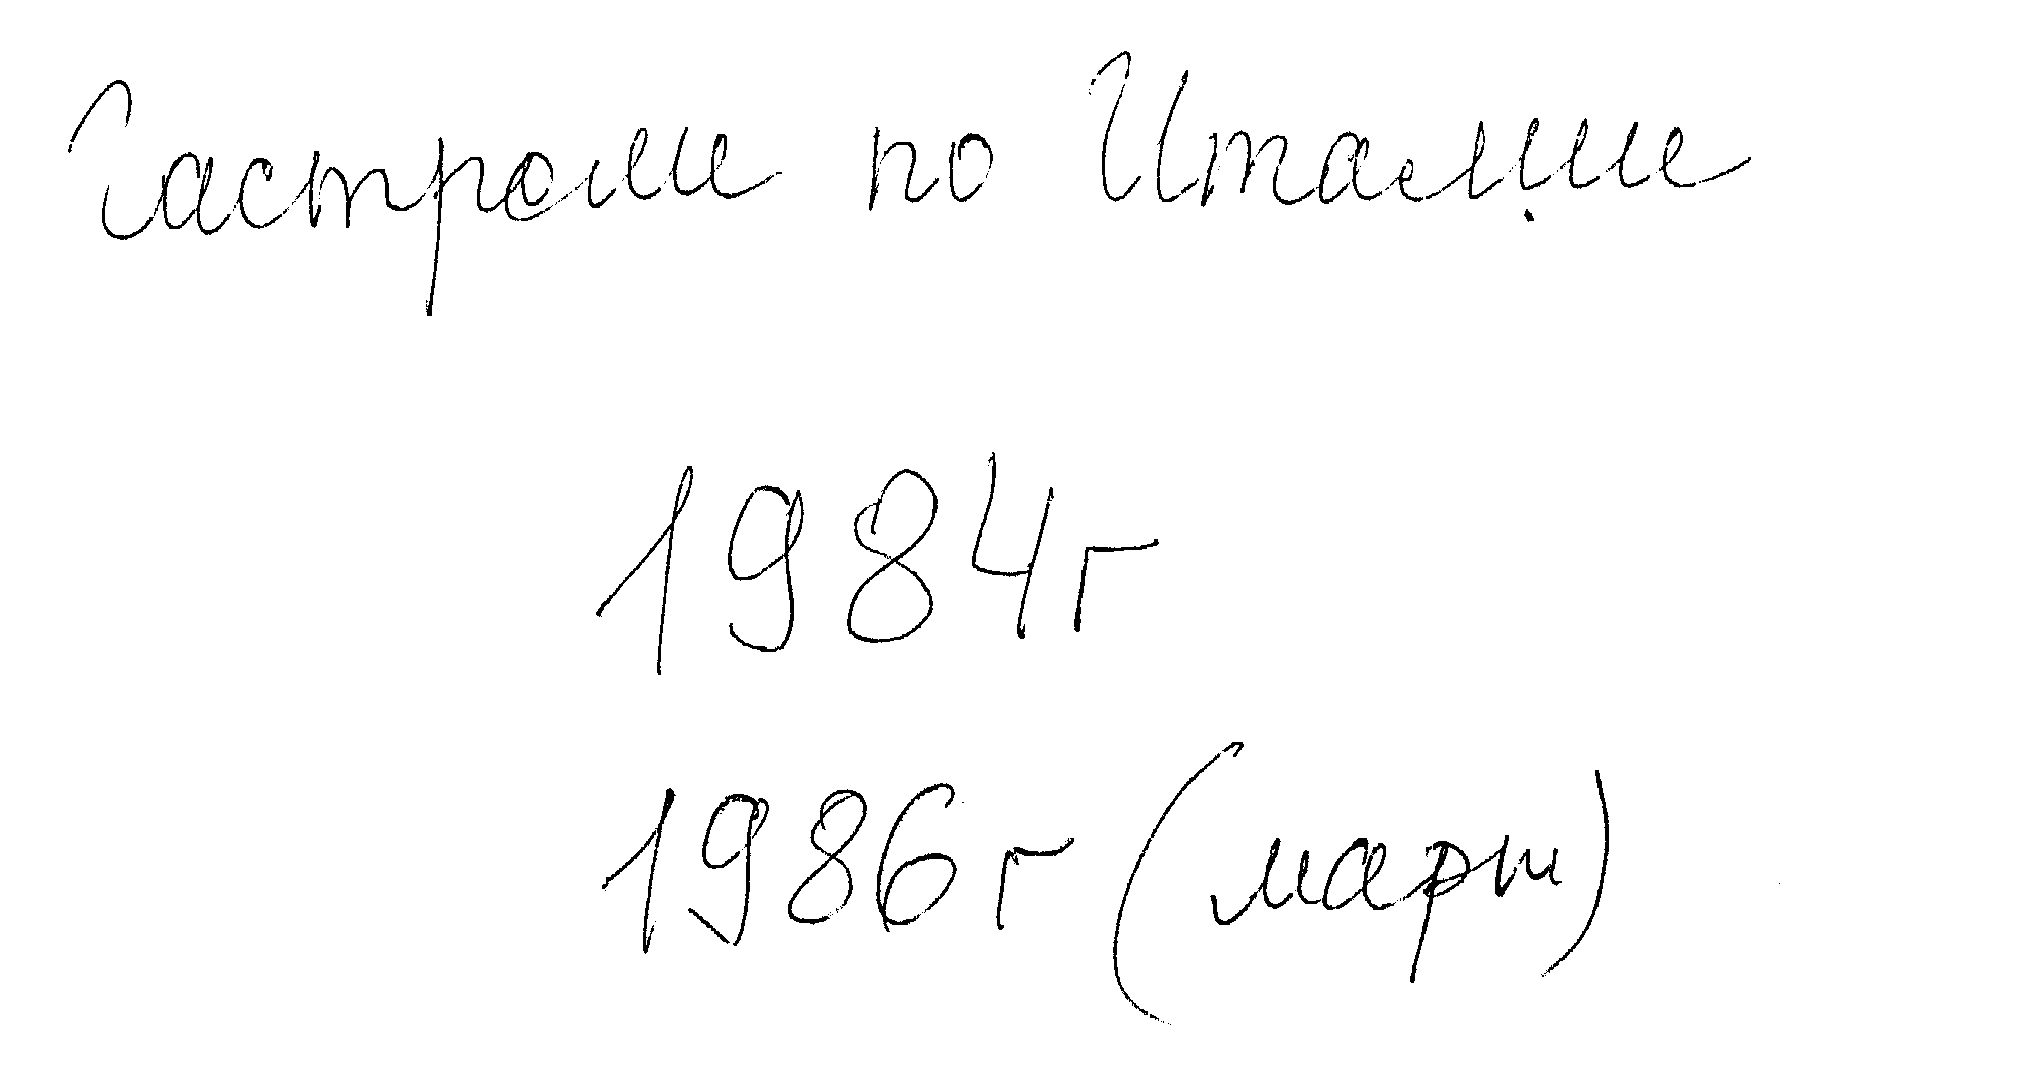 Гастроли по Италии
1984г
1986г (март)